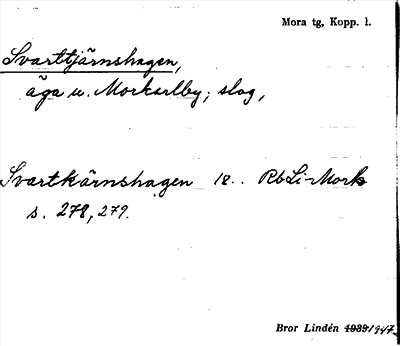 Mora tg, Kopp. l.
Svarttjärnshagen,
äga u. Morkarlby; slog,
Svartkärnshagen 18.. RbLi-Mork
s. 278, 279.
Bror Lindén 1939/1947